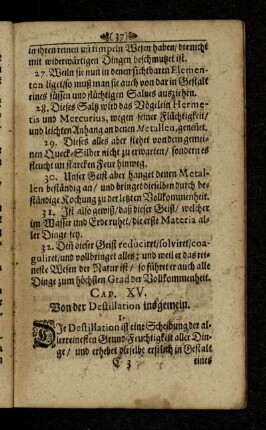 37
in ihren reinen uñ simpeln Wesen haben/ die nicht
mit widerwärtigen Dingen beschmutzet ist.
27. Weiln sie nun in denen sichtbaren Elemen-
ten liget/ so muß man sie auch von dar in Gestalt
eines süssen und flüchtigen Saltzes ausziehen.
28. Dieses Saltz wird das Vögelein Herme-
tis und Mercurius, wegen seiner Flüchtigkeit/
und leichten Anhang an denen Metallen, genennet.
29. Dieses alles aber stehet von dem gemei-
nen Queck-Silber nicht zu erwarten/ sondern es
fleucht im starcken Feur hinweg.
30. Unser Geist aber hanget denen Metal-
len beständig an/ und bringet dieselben durch be-
ständige Kochung zu der letzten Vollkommenheit.
31. Ist also gewiß/ daß dieser Geist/ welcher
im Wasser und Erde ruhet/ die erste Materia al-
ler Dinge sey.
32. Deñ dieser Geist reduciret/ solviret/ coa-
guliret/ und vollbringet alles; und weil er das rei-
neste Wesen der Natur ist/ so führet er auch alle
Dinge zum höchsten Grad der Vollkommenheit.
CAP. XV.
Von der Destillation insgemein.
1.
Die Destillation ist eine Scheidung der al-
lerreinesten Grund-Feuchtigkeit aller Din-
ge/ und erhebet dieselbe erstlich in Gestalt
C 3 eines